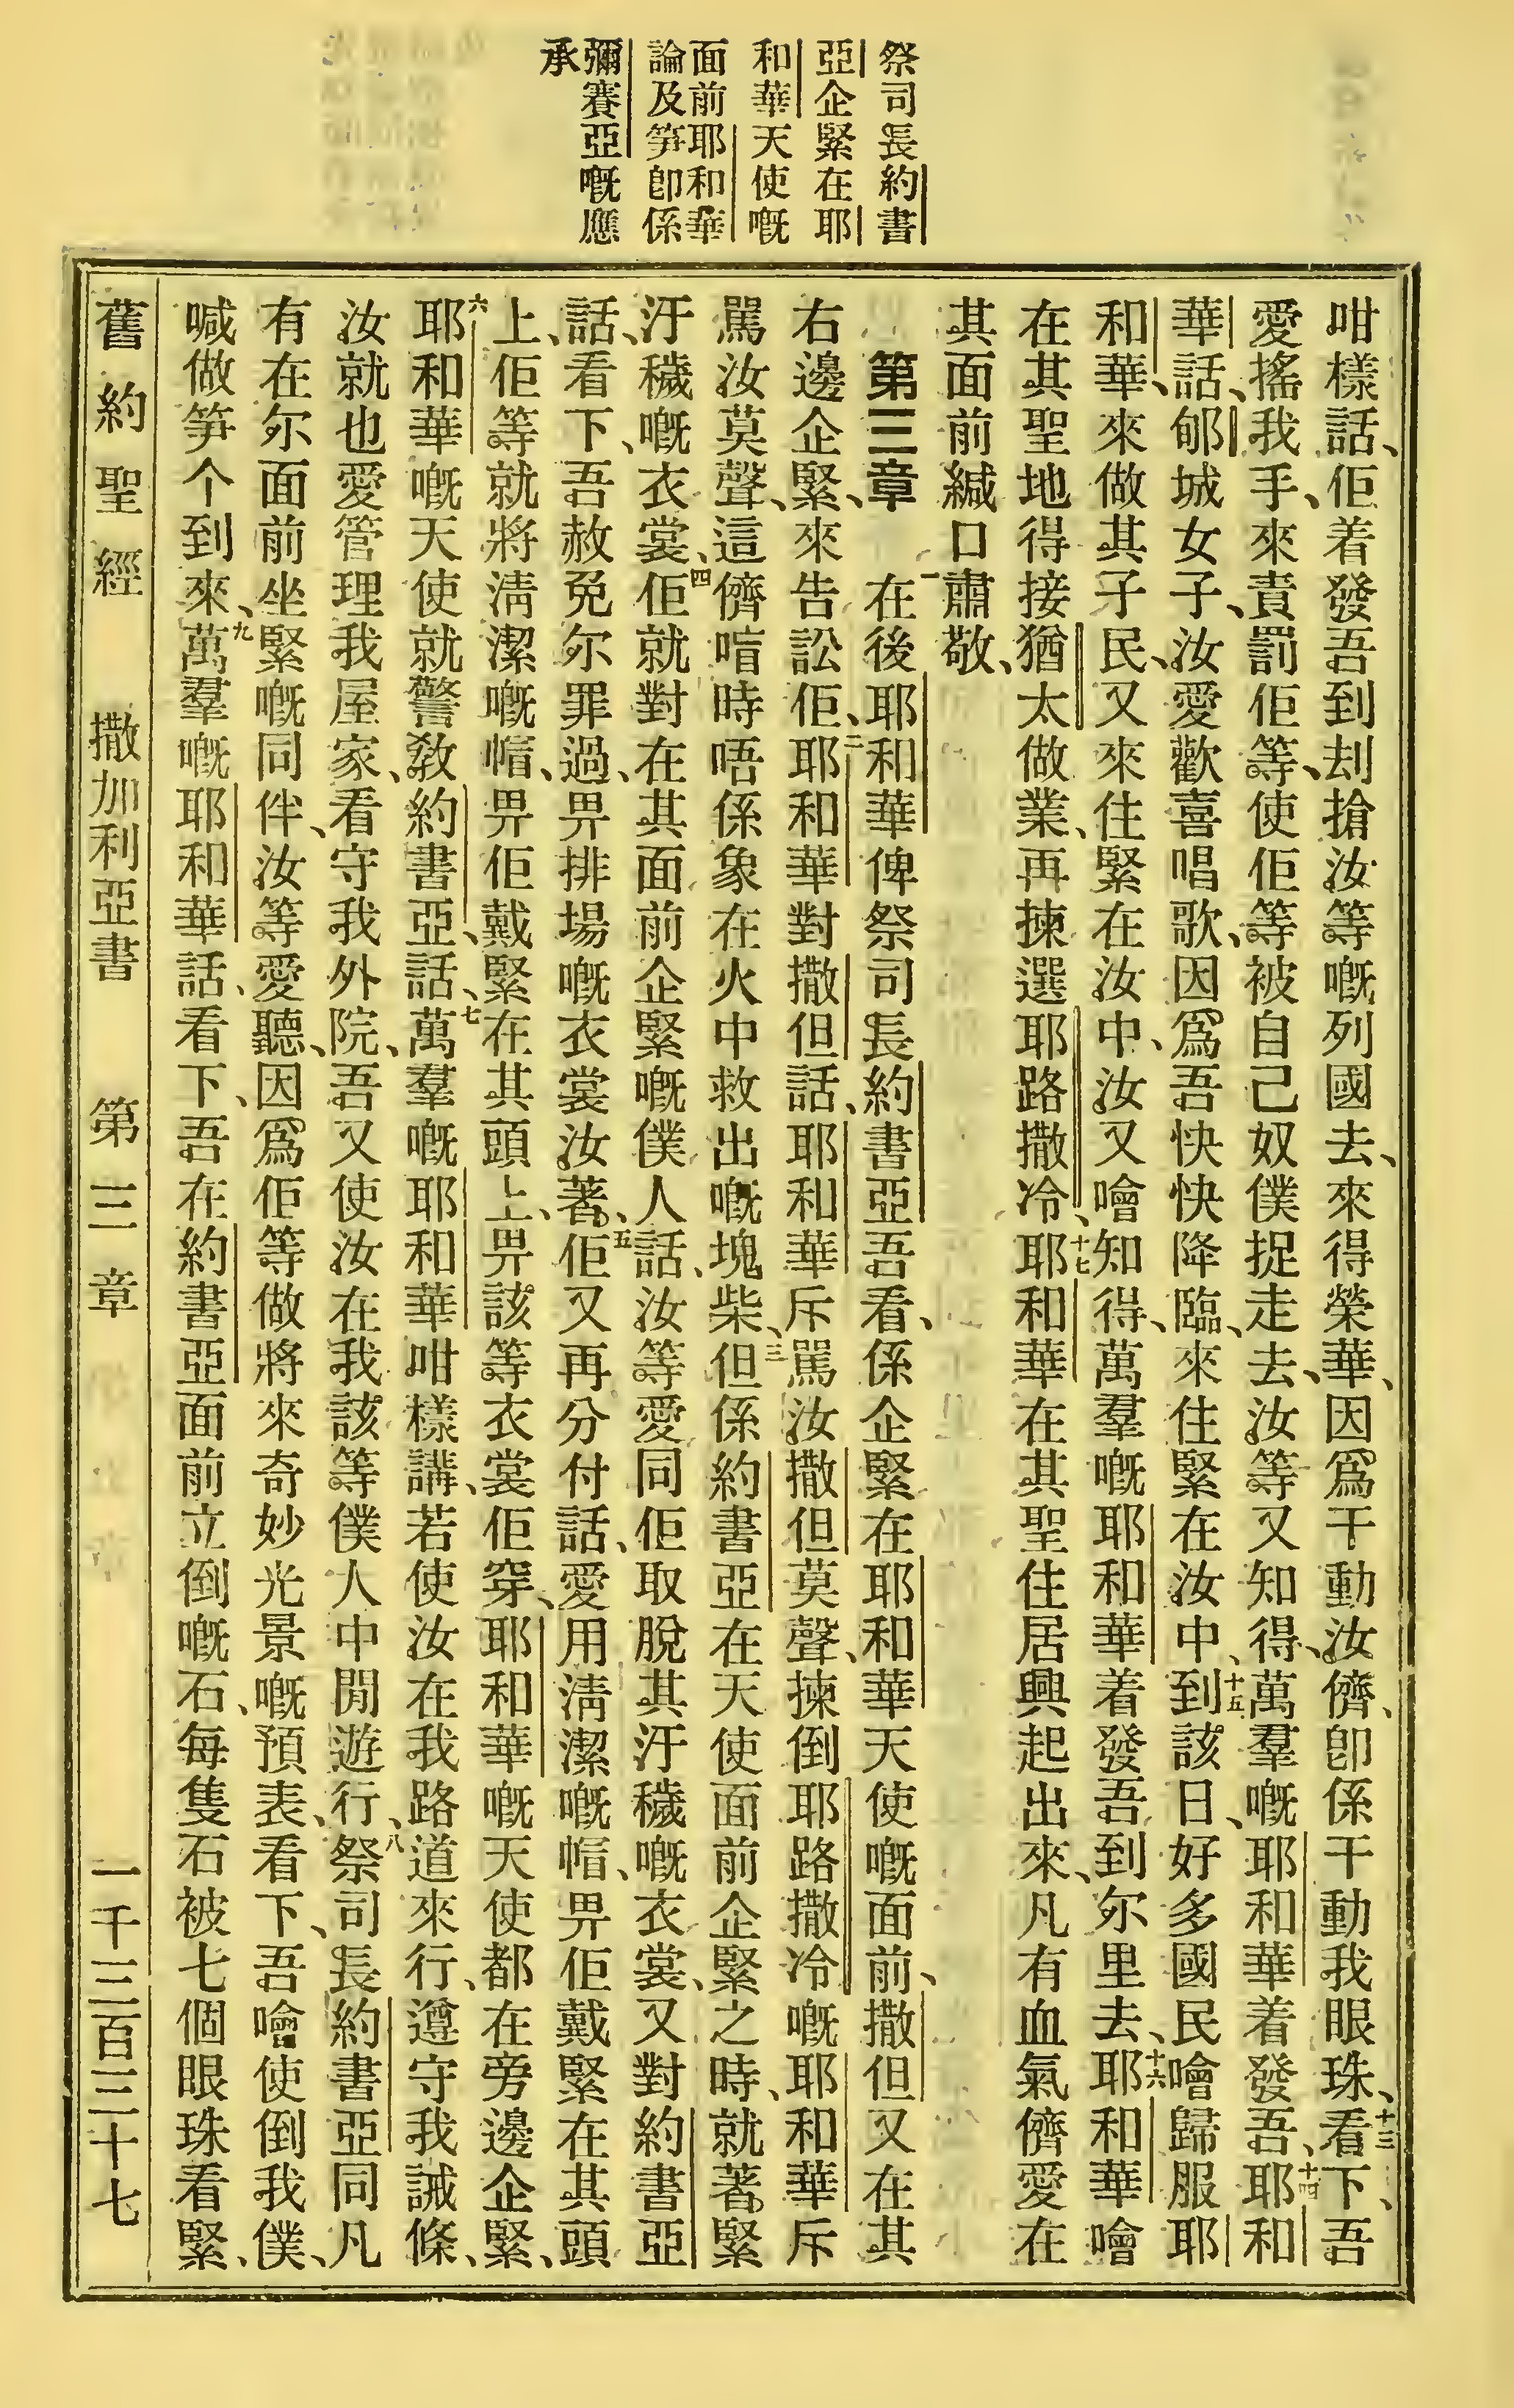 祭司長約書
亞企緊在耶
和華天使嘅
面前耶和華
論及笋卽係
彌賽亞嘅應
承
咁樣話、佢着發吾到刦搶汝等嘅列國去、來得榮華、因爲干動汝儕、卽係干動我眼珠、十三看下、吾
愛搖我手、來責罰佢等、使佢等被自己奴僕捉走去、汝等又知得、萬羣嘅耶和華着發吾、十四耶和
華話、郇城女子、汝愛歡喜唱歌、因爲吾快快降臨、來住緊在汝中、十五到該日、好多國民噲歸服耶
和華、來做其子民、又來住緊在汝中、汝又噲知得、萬羣嘅耶和華着發吾到尔里去、十六耶和華噲
在其聖地得接猶太做業、再揀選耶路撒冷、十七耶和華在其聖住居興起出來、凡有血氣儕愛在
其面前緘口肅敬、
第三章 一在後耶和華俾祭司長約書亞吾看、係企緊在耶和華天使嘅面前、撒但又在其
右邊企緊、來告訟佢、二耶和華對撒但話、耶和華斥罵汝撒但莫聲、揀倒耶路撒冷嘅耶和華斥
罵汝莫聲、這儕喑時唔係象在火中救出嘅塊柴、三但係約書亞在天使面前企緊之時、就著緊
汙穢嘅衣裳、四佢就對在其面前企緊嘅僕人話、汝等愛同佢取脫其汙穢嘅衣裳、又對約書亞
話、看下、吾赦免尔罪過、畀排場嘅衣裳汝著、五佢又再分付話、愛用淸潔嘅帽、畀佢戴緊在其頭
上、佢等就將淸潔嘅帽、畀佢戴緊在其頭上、畀該等衣裳佢穿、耶和華嘅天使都在旁邊企緊、
六耶和華嘅天使就警敎約書亞、話、七萬羣嘅耶和華咁樣講、若使汝在我路道來行、遵守我誡條、
汝就也愛管理我屋家、看守我外院、吾又使汝在我該等僕人中閒遊行、八祭司長約書亞同凡
有在尔面前坐緊嘅同伴、汝等愛聽、因爲佢等做將來奇妙光景嘅預表、看下、吾噲使倒我僕、
喊做笋个到來、九萬羣嘅耶和華話、看下、吾在約書亞面前立倒嘅石、每隻石被七個眼珠看緊、
舊約聖經 撒加利亞書 第三章 一千三百三十七